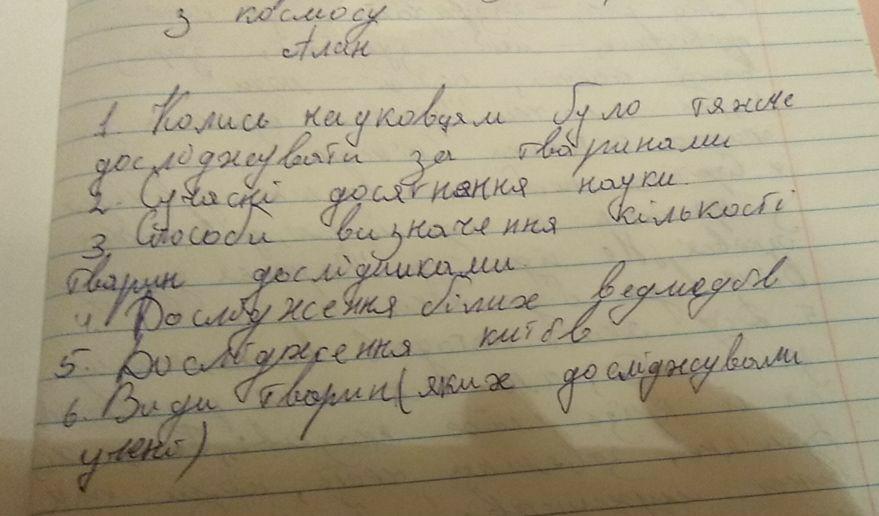 з космосу
План
1. Колись науковцям було тяжче
досліджувати за тваринами
2. Сучасні досягнення науки.
3. Способи визначення кількості
тварин дослідниками.
4. Дослідження білих ведмедів
5. Дослідження китів
6. Види тварин (яких досліджували
учені)